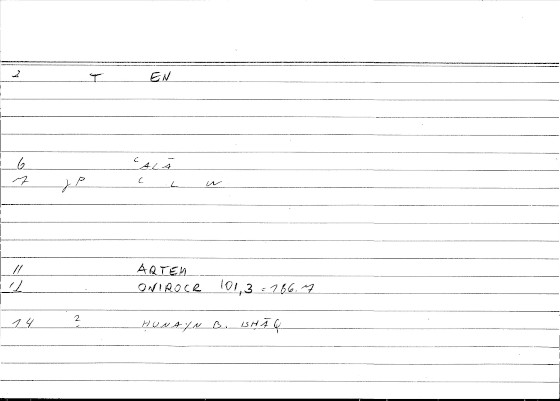 2 T EN
6 ʿALĀ
7 jP C L W
11 ARTEM
12 ONIROCR 101,3 = 166.7
14 2 HUNAYN B. ISHĀQ